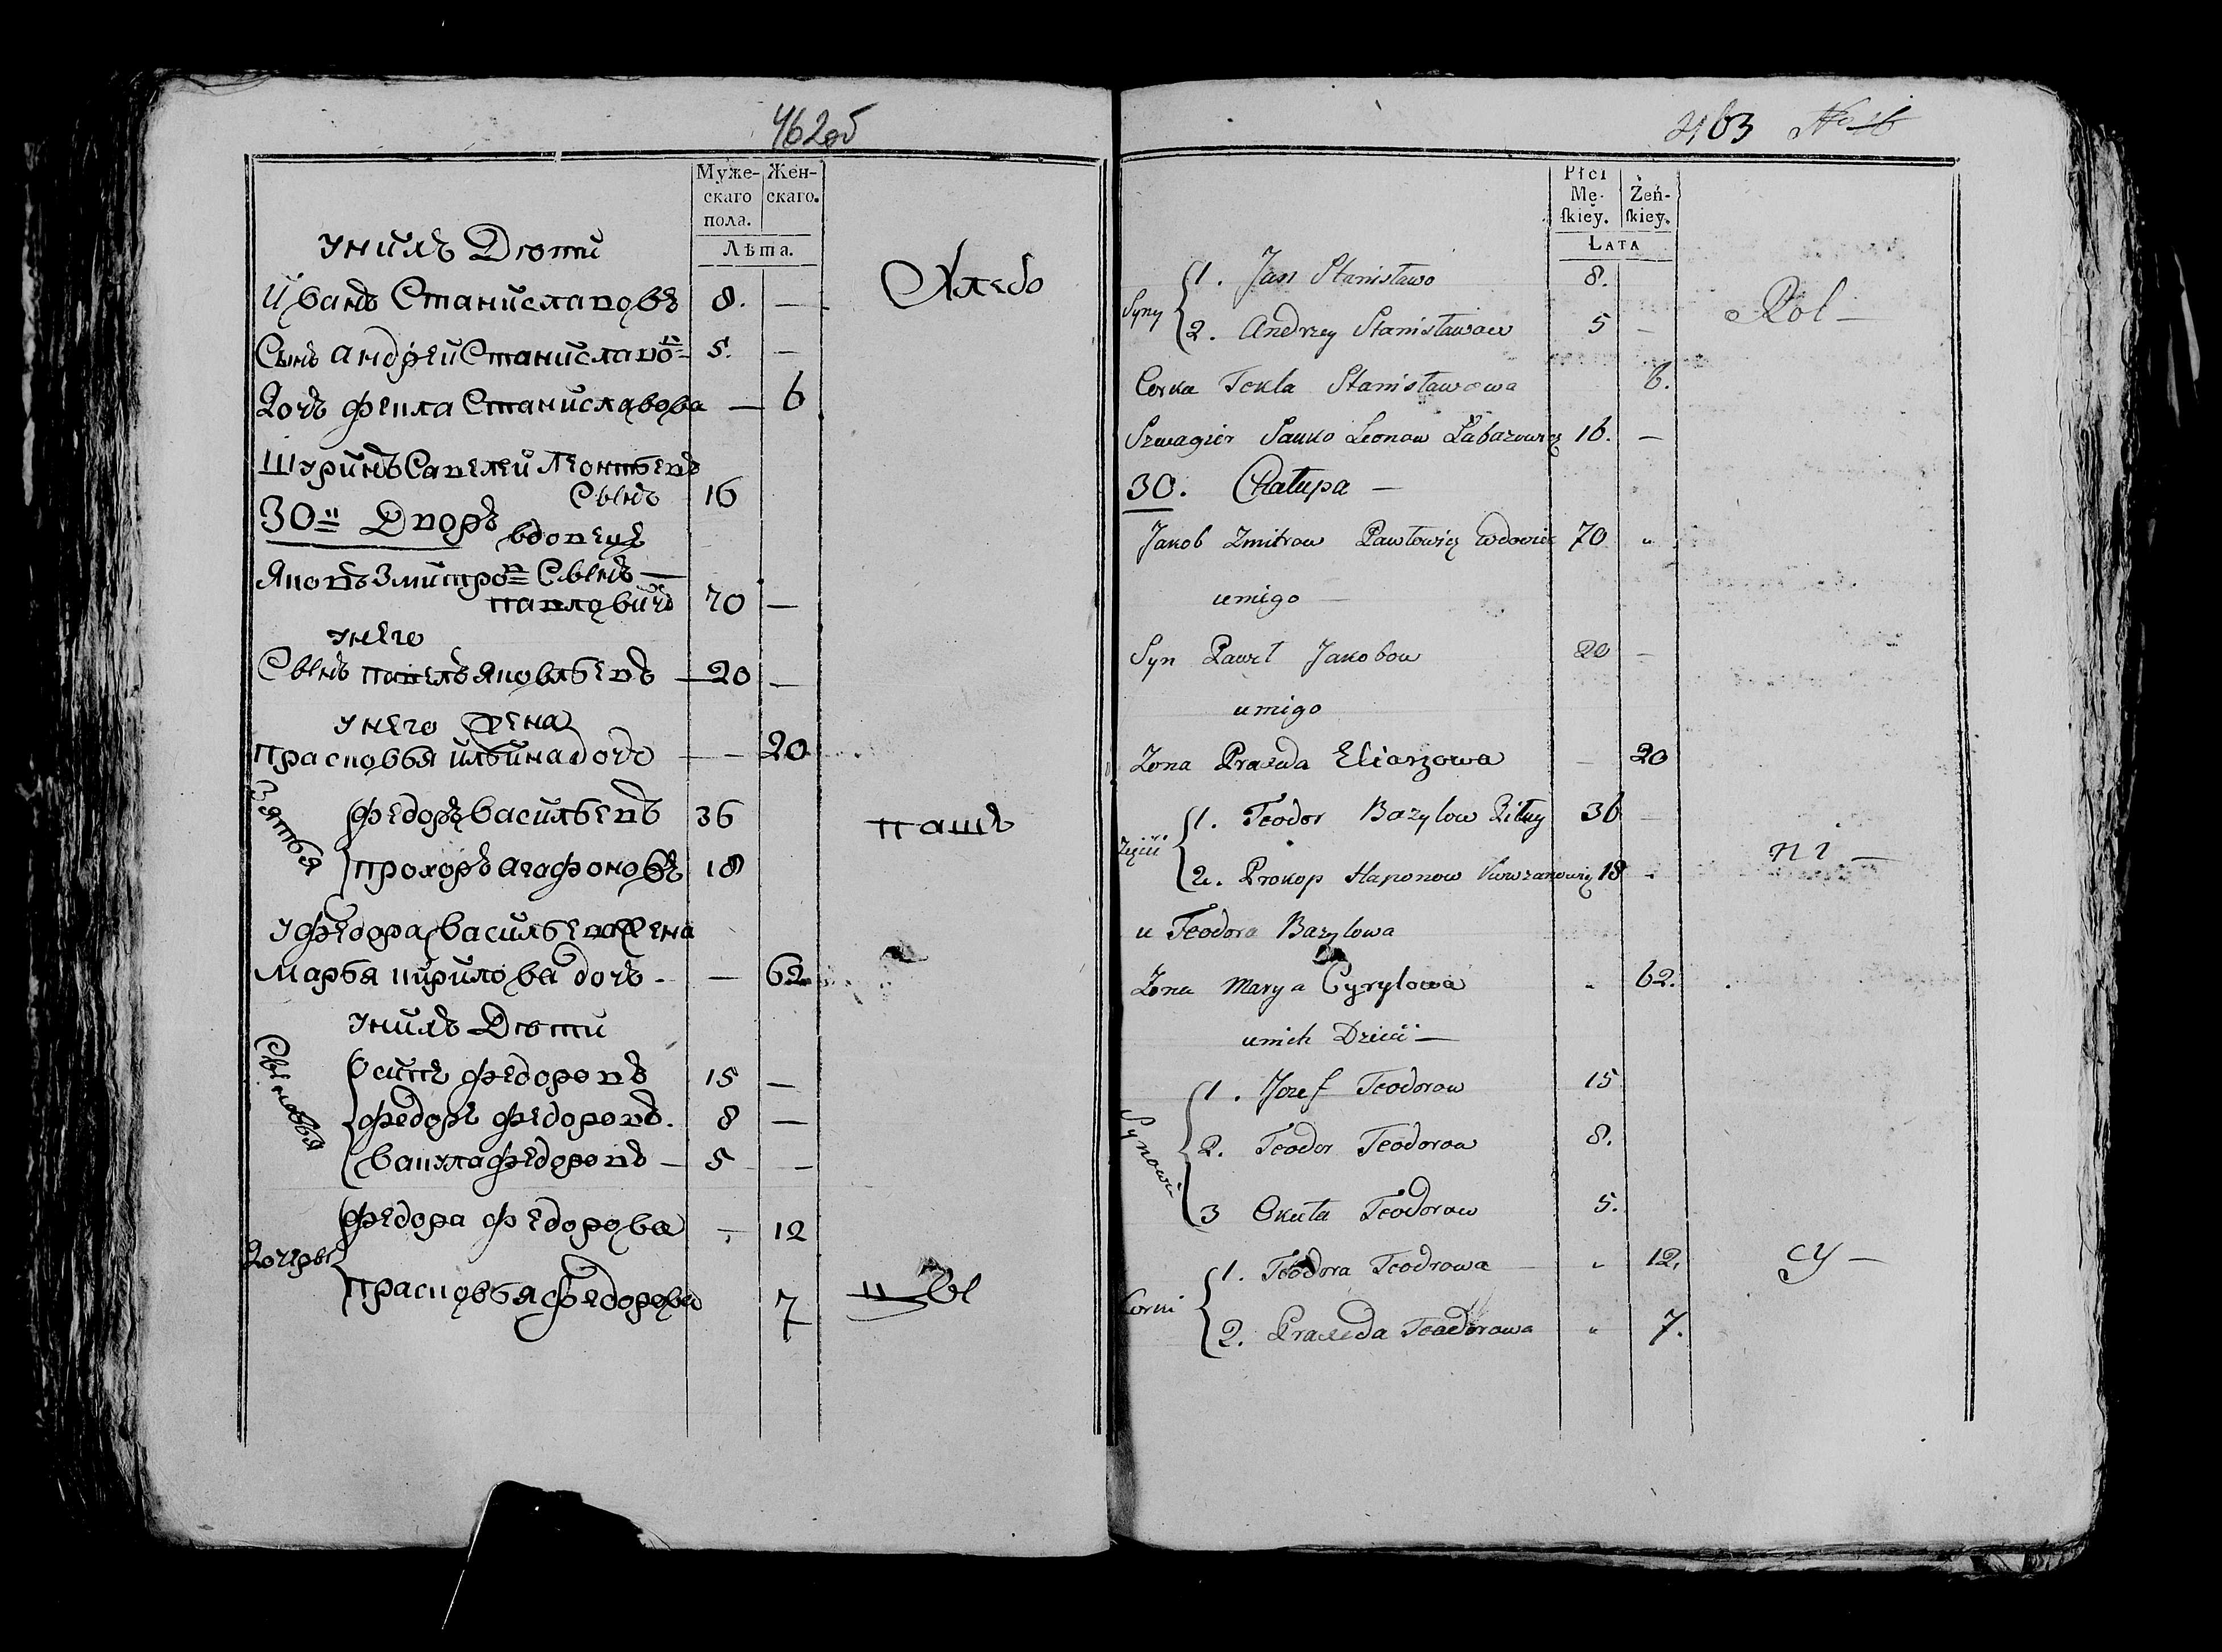 462об
Муже-
скаго
пола.
Жен-
скаго.
Лѣта.
У нихъ Дѣти
Иванъ Станиславовъ 8. —
Сынъ Андрей Станиславо 5. —
Дочь Фекла Станиславова — 6
Хлебо
Шуринъ Савелей Леонтьевъ
Сынъ 16
30й Дворъ
вдовецъ
Яковъ Змитро Сынъ —
Павловичъ 70 —
У него
Сынъ Павелъ Яковлевъ — 20 —
У него Жена
Прасковья Ильина дочь — 20
Зятья
Федоръ Васильевъ 36
Прохоръ Агафоновъ 18
Паш
У Федора Васильева Жена
Марья Кирилова дочь — 62
У нихъ Дѣти
Сыновья
Осипъ Федоровъ 15 —
Федоръ Федоровъ 8 —
Вакула Федоровъ — 5 —
Дочеры
Федора Федорова — 12
Прасковья Федорова 7
цы
463 No 16
Płci
Mę-
skiey.
Żeń-
skiey.
LATA
Syny
1. Jan Stanisławo 8.
2. Andrzey Stanisławow 5 —
Rol —
Corka Tekla Stanisławowa 6.
Szwagier Sawko Leonow Łabazowicz 16. —
30. Chałupa —
Jakob Zmitrow Pawłowicz wdowiec 70 "
u niego —
Syn Paweł Jakobow 20 —
u niego
Zona Praxeda Eliaszowa — 20
Zięcie
1. Teodor Bazylow 36 —
2. Prokop Haponow 18
ni —
u Teodora Bazylowa
Zona Marya Cyrylowa " 62.
u nich Dzieci —
Synowie
1. Jozef Teodorow 15
2. Teodor Teodorow 8.
3 Okuła Teodorow 5.
Corki
1. Teodora Teodrowa — " 12.
2. Praxeda Teodorowa " 7.
cy —